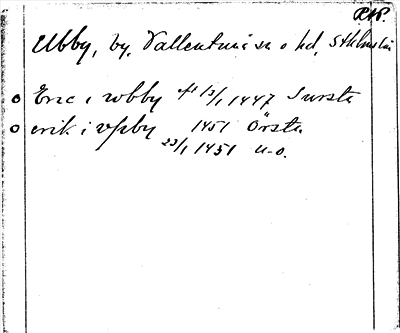 RAP.
Ubby, by, Vallentuna sn o hd, Sthlms län
Eric i wbby eft 13/1 1447 Snrsta
erik i vpby 1451 Örsta
23/1 1451 u.o.